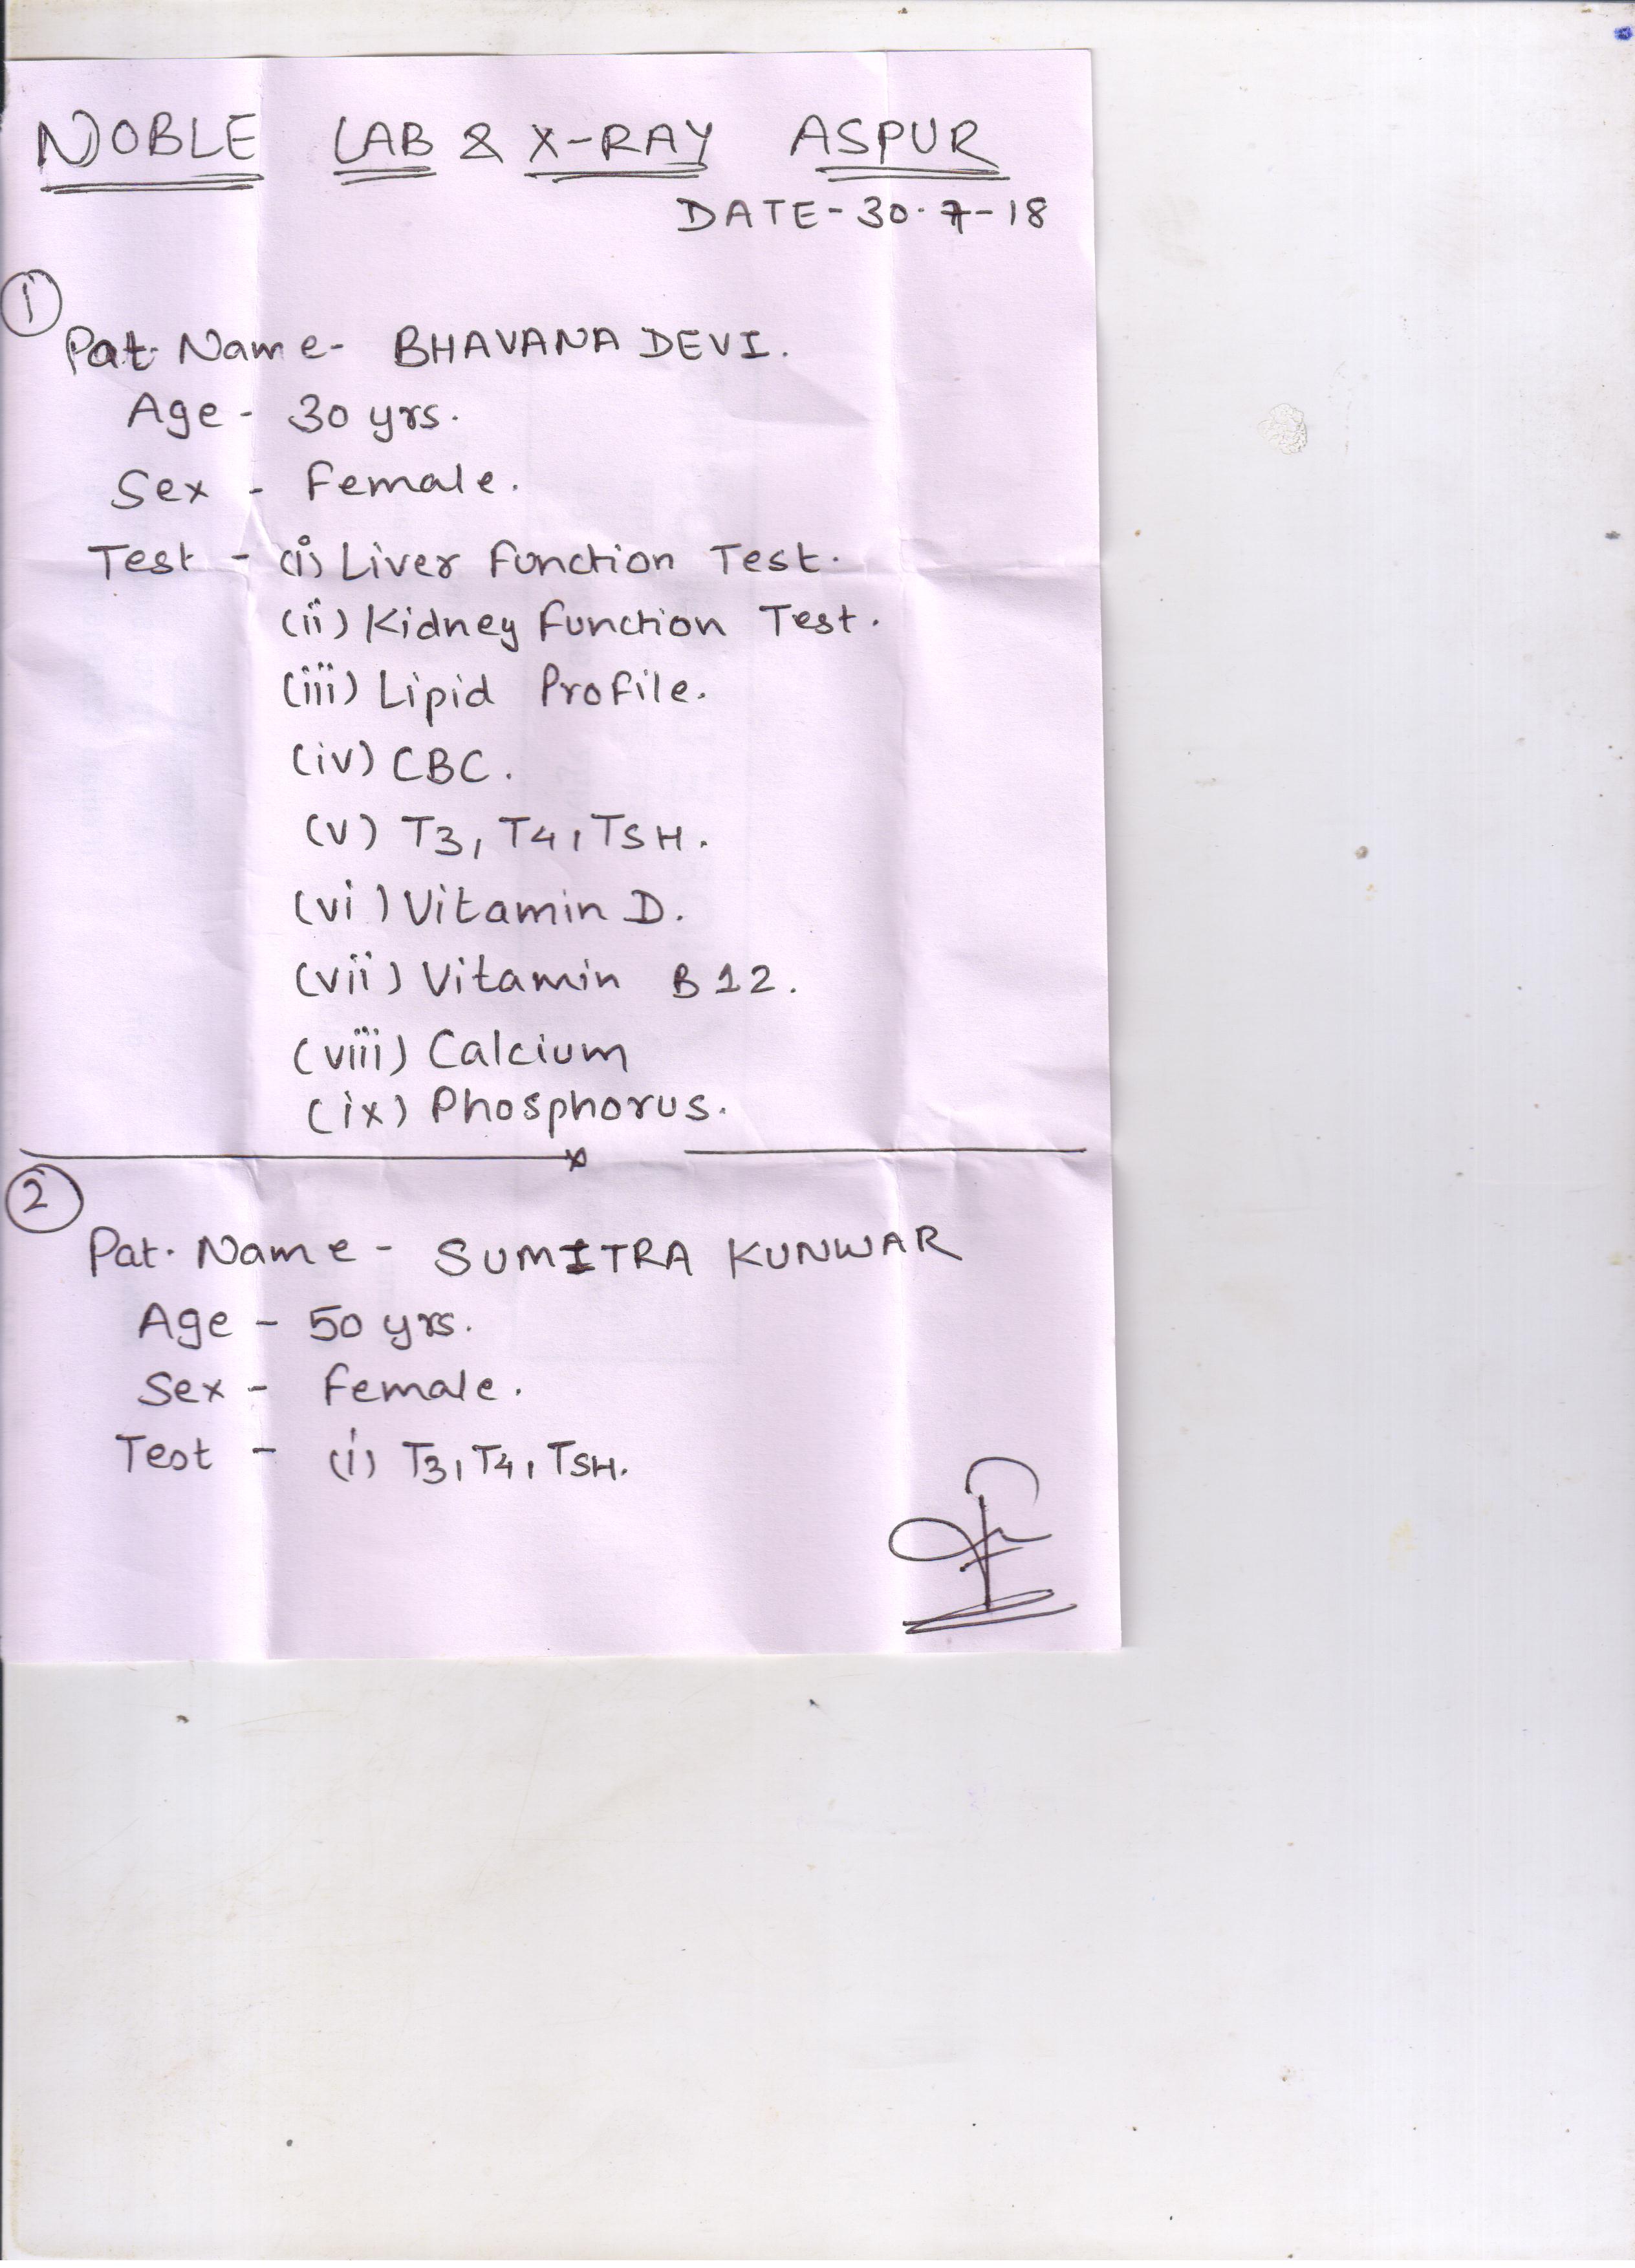 NOBLE LAB & X-RAY ASPUR
DATE-30.7-18
1
Pat. Name- BHAVANA DEVI.
Age - 30 yrs.
Sex - Female.
Test - (i) Liver Function Test.
(ii) Kidney Function Test.
(iii) Lipid Profile.
(iv) CBC.
(v) T3, T4, TSH.
(vi) Vitamin D.
(vii) Vitamin B12.
(viii) Calcium
(ix) Phosphorus.
2
Pat. Name - SUMITRA KUNWAR
Age - 50 yrs.
Sex - Female.
Test - (i) T3, T4, TSH.